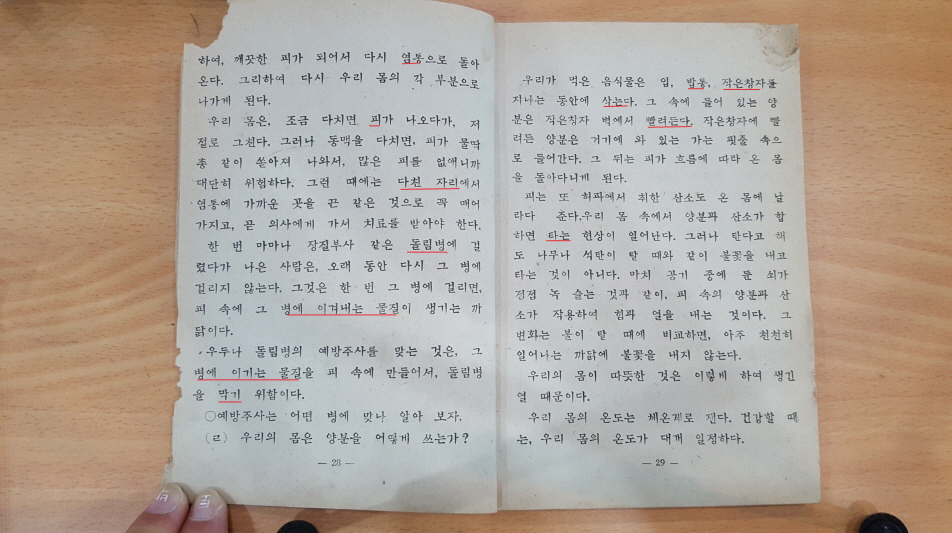 하여, 깨끗한 피가 되어서 다시 염통으로 돌아
온다. 그리하여 다시 우리 몸의 각 부분으로
나가게 된다.
우리 몸은, 조금 다치면 피가 나오다가, 저
절로 그친다. 그러나 동맥을 다치면, 피가 물딱
총 같이 쏟아져 나와서, 많은 피를 없애니까
대단히 위험하다. 그런 때에는 다친 자리에서
염통에 가까운 곳을 끈 같은 것으로 꼭 매어
가지고, 곧 의사에게 가서 치료를 받아야 한다.
한 번 마마나 장질부사 같은 돌림병에 걸
렸다가 나은 사람은, 오래 동안 다시 그 병에
걸리지 않는다. 그것은 한 번 그 병에 걸리면,
피 속에 그 병에 이겨내는 물질이 생기는 까
닭이다.
우두나 돌림병의 예방주사를 맞는 것은, 그
병에 이기는 물질을 피 속에 만들어서, 돌림병
을 막기 위함이다.
○예방주사는 어떤 병에 맞나 알아 보자.
(ㄹ) 우리의 몸은 양분을 어떻게 쓰는가?
— 28 —
우리가 먹은 음식물은 입, 밥통, 작은창자를
지나는 동안에 삭는다. 그 속에 들어 있는 양
분은 작은창자 벽에서 빨려든다. 작은창자에 빨
려든 양분은 거기에 와 있는 가는 핏줄 속으
로 들어간다. 그 뒤는 피가 흐름에 따라 온 몸
을 돌아다니게 된다.
피는 또 허파에서 취한 산소도 온 몸에 날
라다 준다.우리 몸 속에서 양분과 산소가 합
하면 타는 현상이 일어난다. 그러나 탄다고 해
도 나무나 석탄이 탈 때와 같이 불꽃을 내고
타는 것이 아니다. 마치 공기 중에 둔 쇠가
점점 녹 슬는 것과 같이, 피 속의 양분과 산
소가 작용하여 힘과 열을 내는 것이다. 그
변화는 불이 탈 때에 비교하면, 아주 천천히
일어나는 까닭에 불꽃을 내지 않는다.
우리의 몸이 따뜻한 것은 이렇게 하여 생긴
열 때문이다.
우리 몸의 온도는 체온계로 잰다. 건강할 때
는, 우리 몸의 온도가 대개 일정하다.
— 29 —